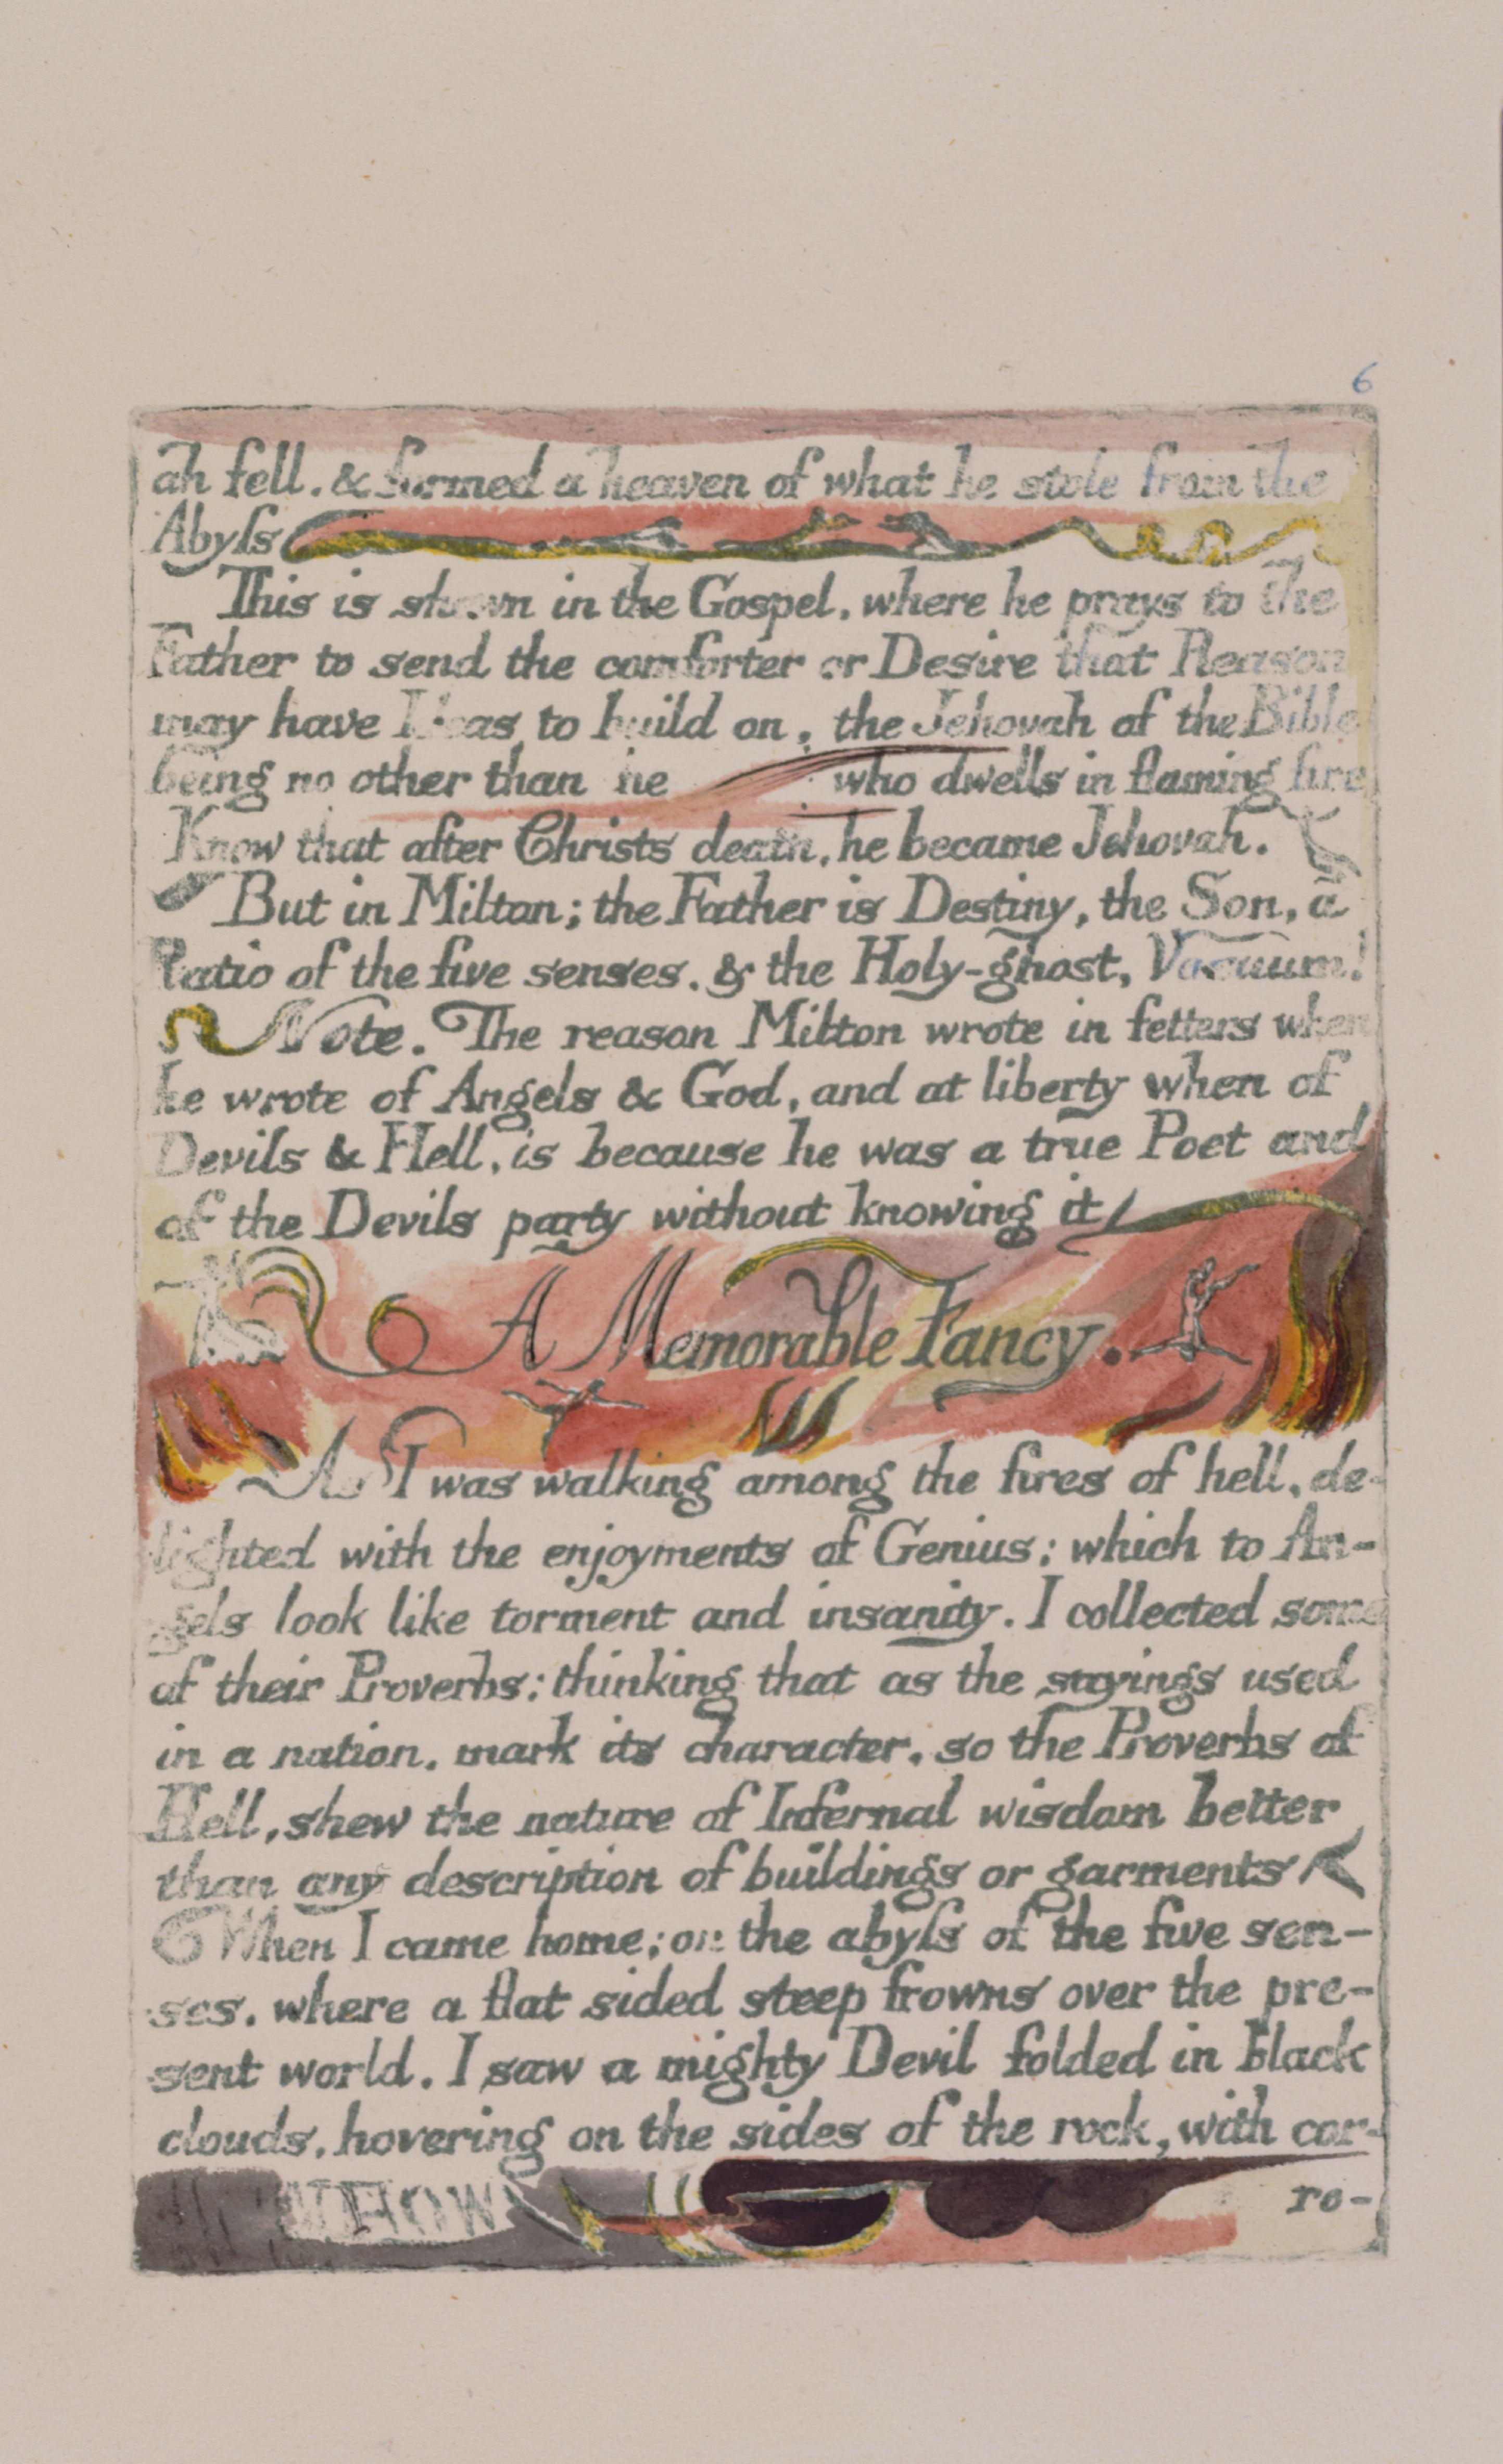 6
ah fell. & formed a heaven of what he stole from the
Abyſs
This is shewn in the Gospel, where he prays to the
Father to send the comforter or Desire that Reason
may have Ideas to build on, the Jehovah of the Bible
being no other than he who dwells in flaming fire
Know that after Christs death, he became Jehovah.
But in Milton; the Father is Destiny, the Son, a
Ratio of the five senses. & the Holy-ghost, Vacuum!
Note. The reason Milton wrote in fetters when
he wrote of Angels & God, and at liberty when of
Devils & Hell, is because he was a true Poet and
of the Devils party without knowing it
A Memorable Fancy.
As I was walking among the fires of hell, de-
lighted with the enjoyments of Genius; which to An-
gels look like torment and insanity. I collected some
of their Proverbs: thinking that as the sayings used
in a nation, mark its character, so the Proverbs of
Hell, shew the nature of Infernal wisdom better
than any description of buildings or garments
When I came home; on the abyſs of the five sen-
ses, where a flat sided steep frowns over the pre-
sent world. I saw a mighty Devil folded in black
clouds, hovering on the sides of the rock, with cor-
HOW
ro-